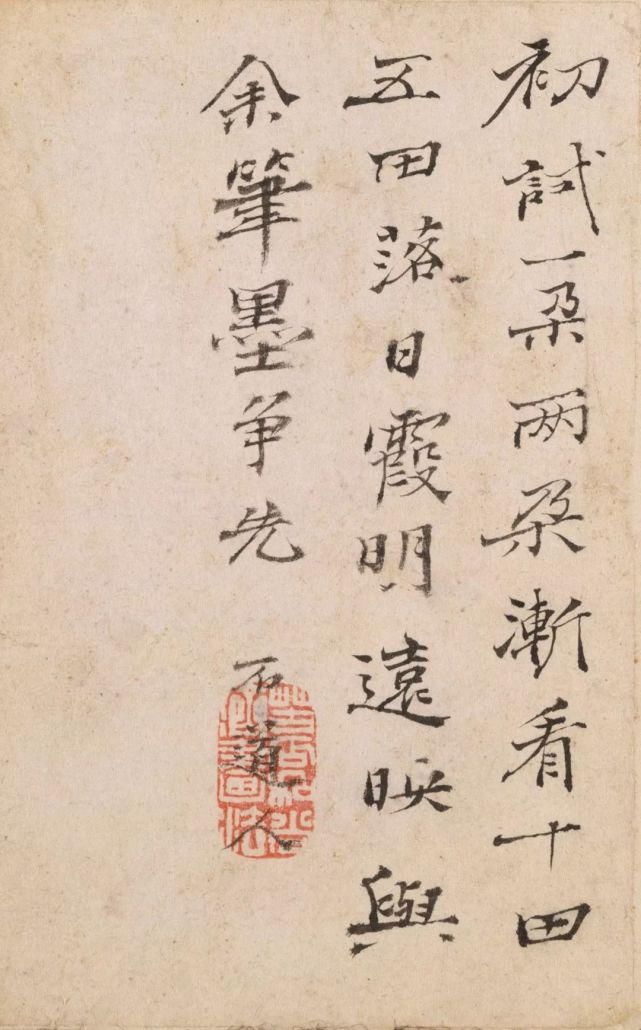 初試一朶兩朶漸看十田
五田落日霞明遠映與
余筆墨争先
石道人